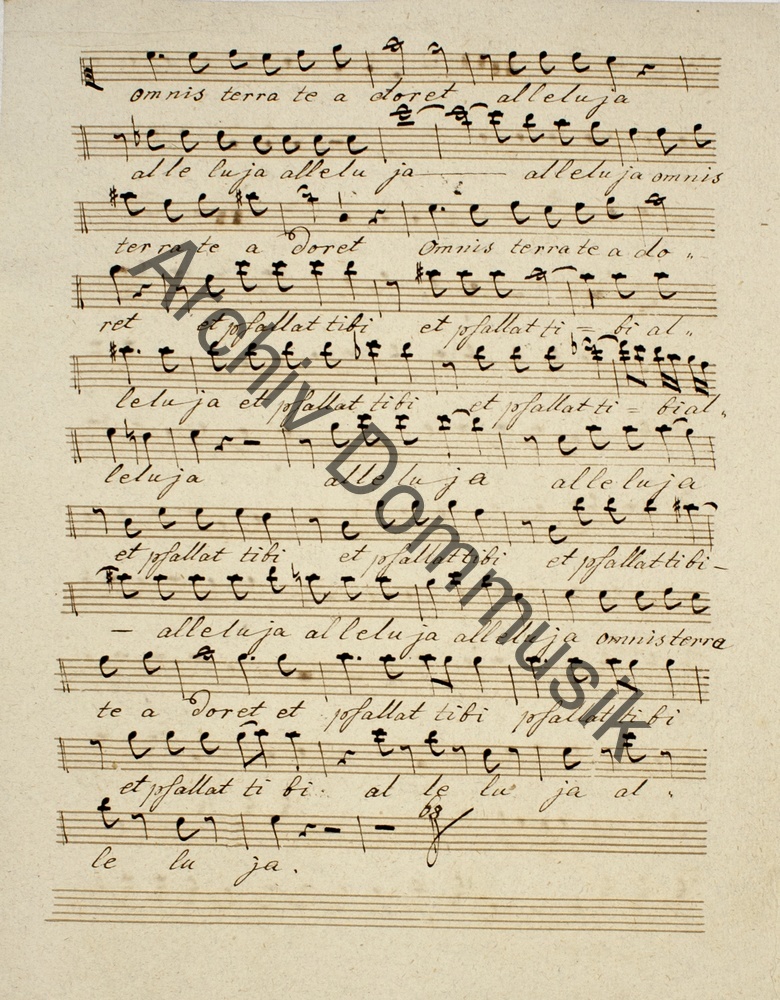 omnis terra te a doret alleluja
alle luja allelu ja alleluja omnis
terra te a doret Omnis terra te a do„
ret et psallat tibi et psallat ti = bi al„
leluja et psallat tibi et psallat ti = bi al„
leluja alleluja alleluja
et psallat tibi et psallat tibi et psallat tibi –
– alleluja alleluja alleluja omnis terra
te a doret et psallat tibi psallat tibi
et psallat ti bi. al le lu ja al„
le lu ja.
Archiv Dommusik